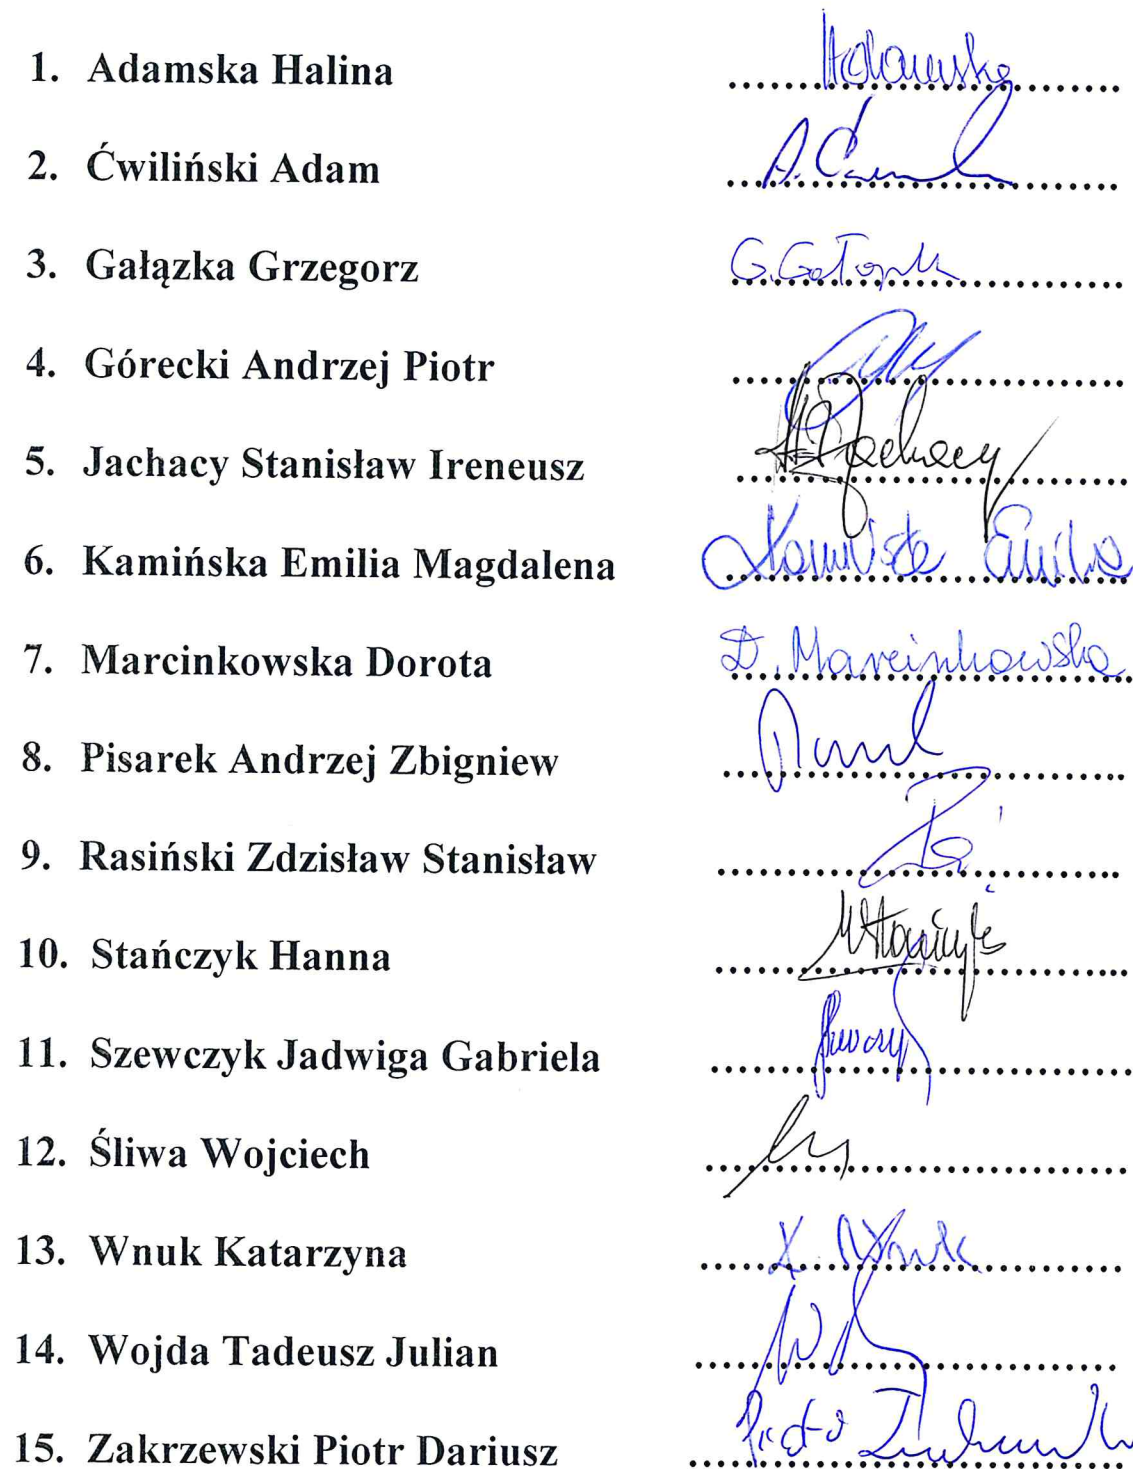 1. Adamska Halina
2. Ćwiliński Adam
3. Gałązka Grzegorz G. Gałązk
4. Górecki Andrzej Piotr
5. Jachacy Stanisław Ireneusz Jachacy
6. Kamińska Emilia Magdalena Kamińska Emilia
7. Marcinkowska Dorota D. Marcinkowska
8. Pisarek Andrzej Zbigniew
9. Rasiński Zdzisław Stanisław
10. Stańczyk Hanna
11. Szewczyk Jadwiga Gabriela
12. Śliwa Wojciech
13. Wnuk Katarzyna K. Wnuk
14. Wojda Tadeusz Julian
15. Zakrzewski Piotr Dariusz Piotr